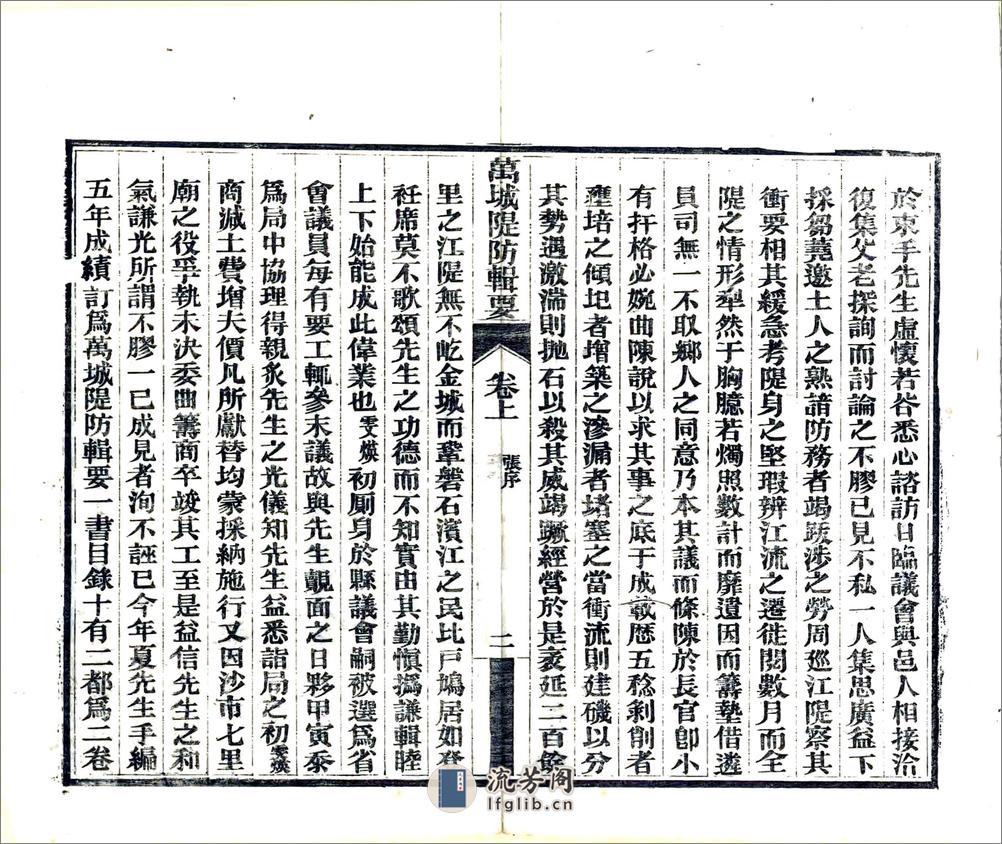 於束手先生虛懷若谷悉心諮訪日臨議會與邑人相接洽
復集父老探詢而討論之不膠已見不私一人集思廣益下
採芻蕘邀土人之熟諳防務者竭跋涉之勞周巡江隄察其
衝要相其緩急考隄身之堅瑕辨江流之遷徙閱數月而全
隄之情形犁然于胸臆若燭照數計而靡遺因而籌墊借遴
員司無一不取鄉人之同意乃本其議而條陳於長官卽小
有扞格必婉曲陳說以求其事之底于成載歷五稔剝削者
壅培之傾圯者增築之滲漏者堵塞之當衝流則建磯以分
其勢遇激湍則拋石以殺其威竭蹶經營於是袤延二百餘
萬城隄防輯要
卷上
張序
二
里之江隄無不屹金城而鞏磐石濱江之民比戶鳩居如登
衽席莫不歌頌先生之功德而不知實由其勤愼撝謙輯睦
上下始能成此偉業也雯煥初厠身於縣議會嗣被選爲省
會議員每有要工輒參末議故與先生覿面之日夥甲寅忝
爲局中協理得親炙先生之光儀知先生益悉詣局之初雯煥
商減土費增夫價凡所獻替均蒙採納施行又因沙市七里
廟之役爭執未決委曲籌商卒竣其工至是益信先生之和
氣謙光所謂不膠一已成見者洵不誣已今年夏先生手編
五年成績訂爲萬城隄防輯要一書目錄十有二都爲二卷
流芳阁
lfglib.cn